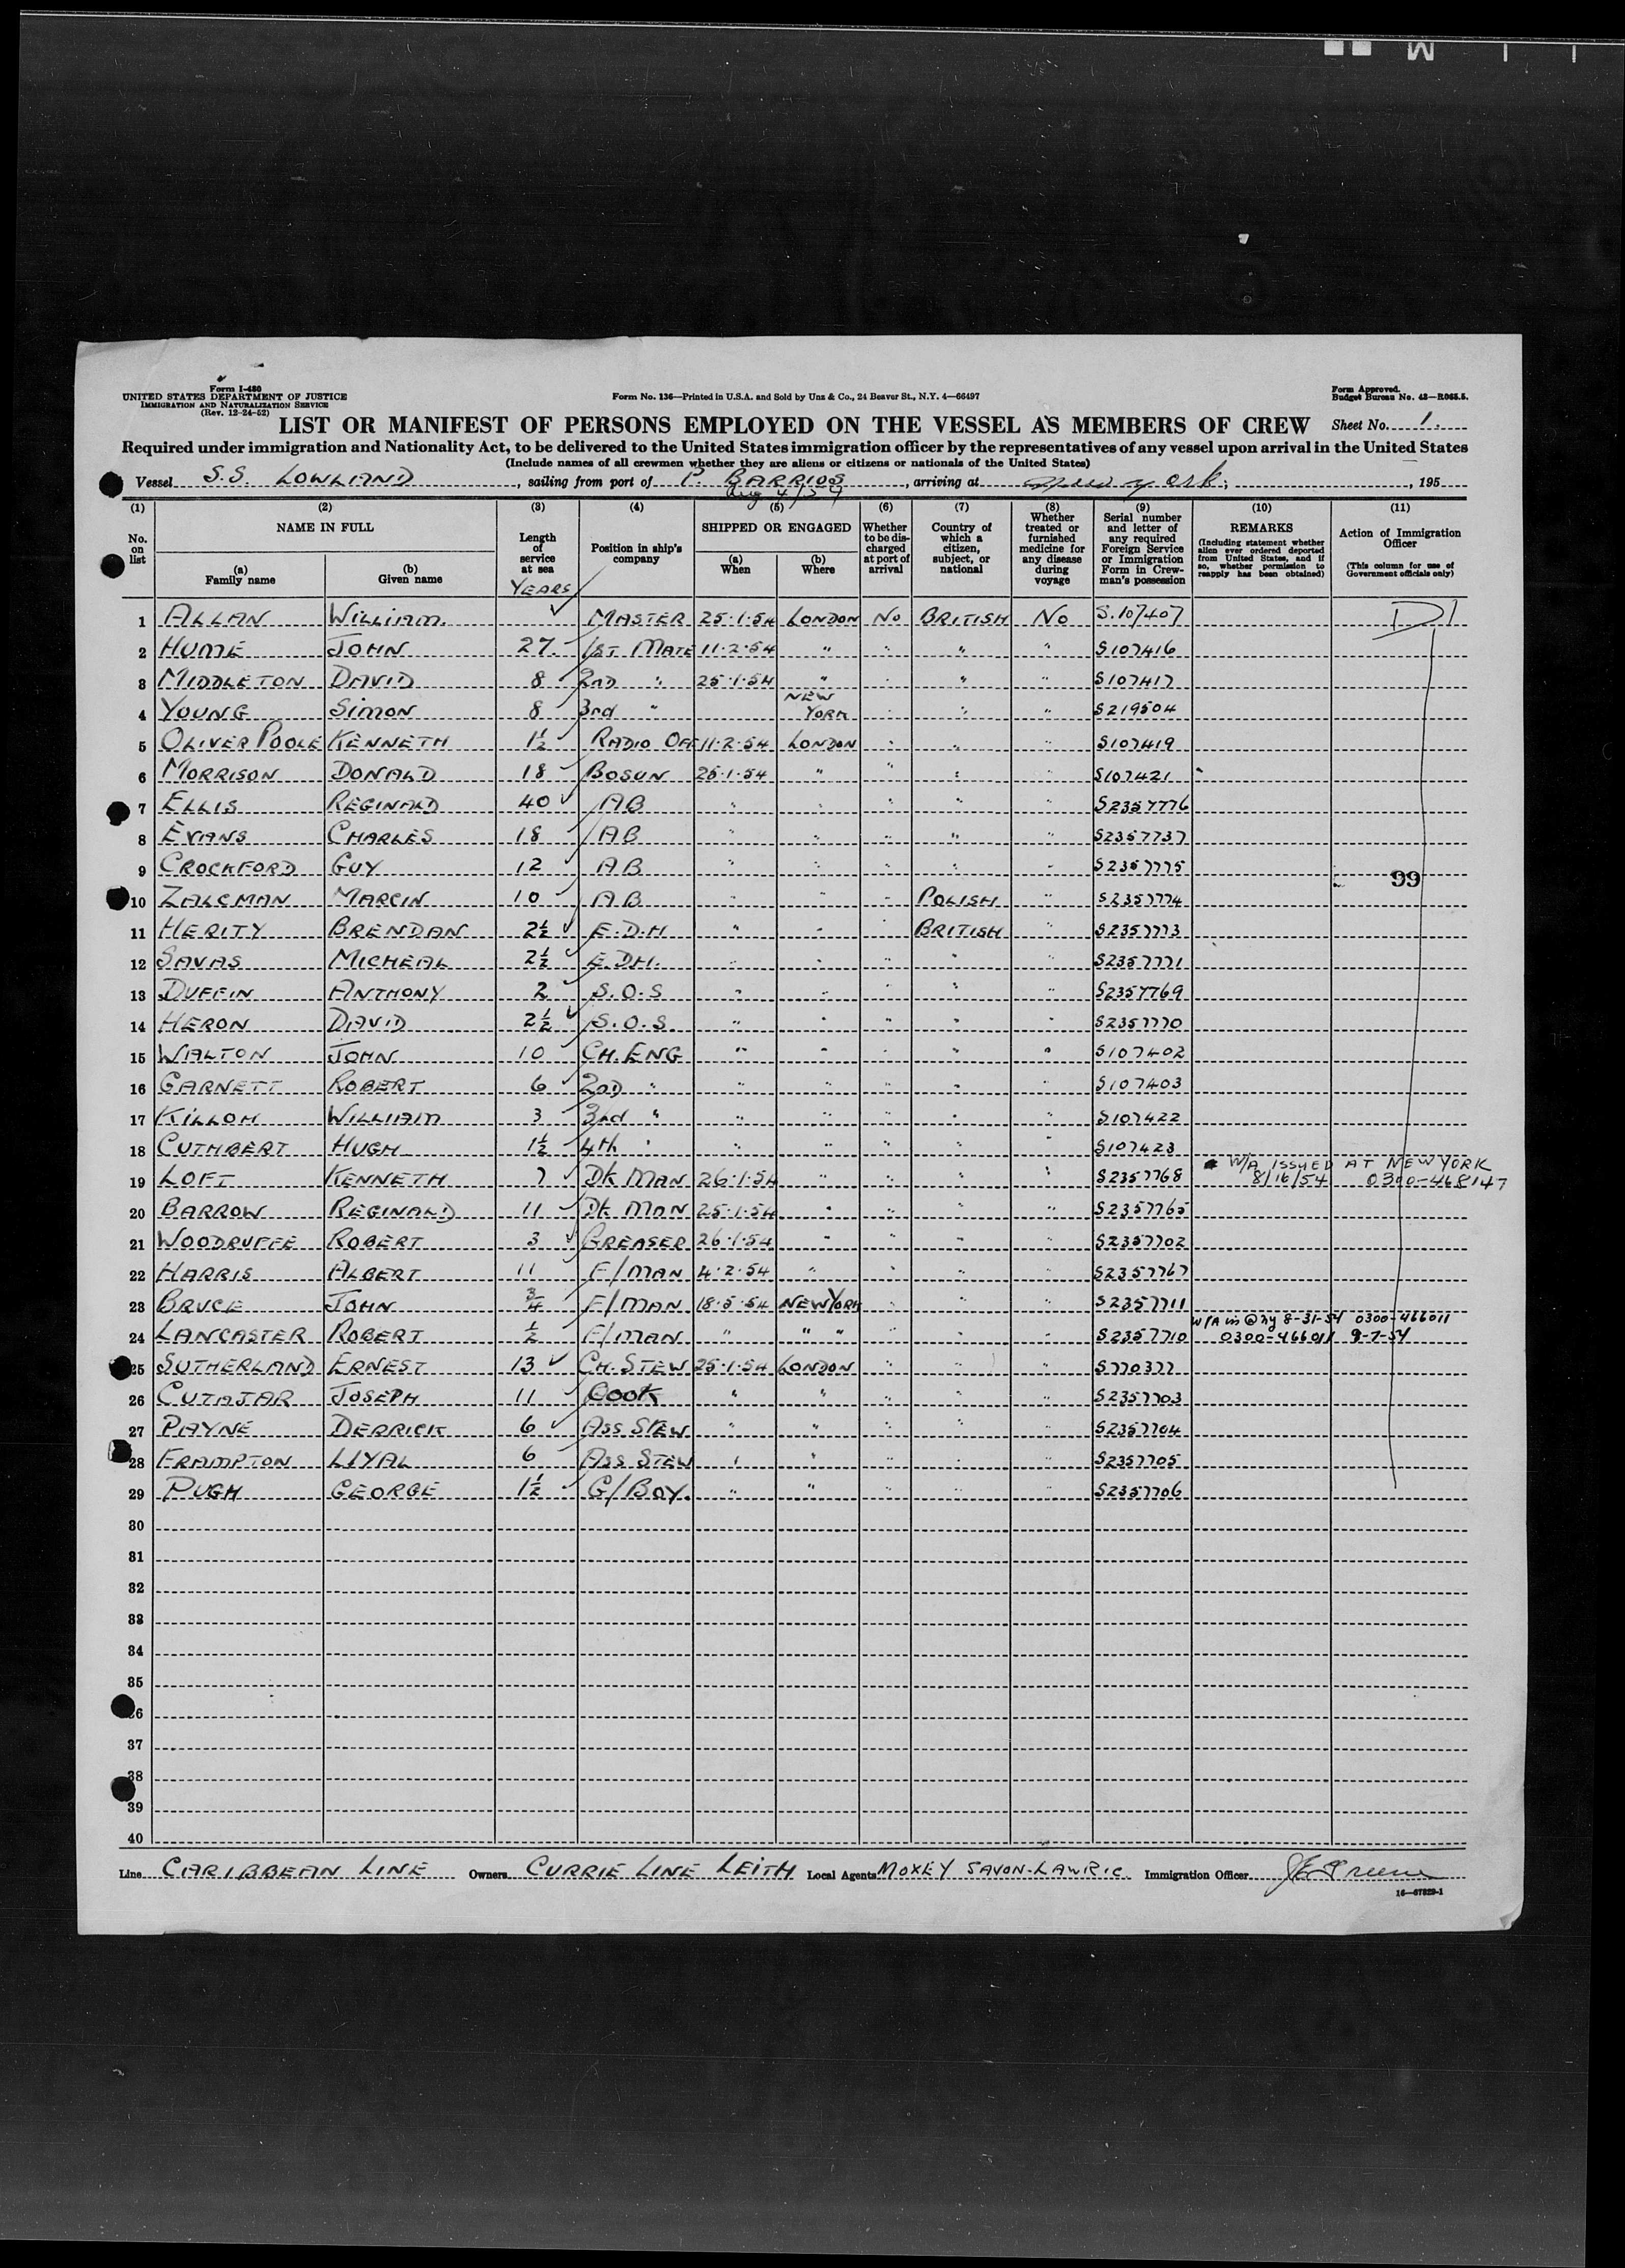 Form I-480
UNITED STATES DEPARTMENT OF JUSTICE
IMMIGRATION AND NATURALIZATION SERVICE
(Rev. 12-24-52)
Form No. 136—Printed in U.S.A. and Sold by Unz & Co., 24 Beaver St., N.Y. 4—66497
Form Approved.
Budget Bureau No. 43—R065.5.
LIST OR MANIFEST OF PERSONS EMPLOYED ON THE VESSEL AS MEMBERS OF CREW Sheet No. 1.
Required under immigration and Nationality Act, to be delivered to the United States immigration officer by the representatives of any vessel upon arrival in the United States
(Include names of all crewmen whether they are aliens or citizens or nationals of the United States)
Vessel S.S. LOWLAND, sailing from port of P. BARRIOS, arriving at New York, 195
Aug 4/54
(1) No. on list
(2) NAME IN FULL (a) Family name (b) Given name
(3) Length of service at sea YEARS
(4) Position in ship's company
(5) SHIPPED OR ENGAGED (a) When (b) Where
(6) Whether to be discharged at port of arrival
(7) Country of which a citizen, subject, or national
(8) Whether treated or furnished medicine for any disease during voyage
(9) Serial number and letter of any required Foreign Service or Immigration Form in Crewman's possession
(10) REMARKS (Including statement whether alien ever ordered deported from United States, and if so, whether permission to reapply has been obtained)
(11) Action of Immigration Officer (This column for use of Government officials only)
1 ALLAN WILLIAM. MASTER 25.1.54 LONDON NO BRITISH NO S.107407 D1
2 HUME JOHN 27. 1ST MATE 11.2.54 " " " " S107416
3 MIDDLETON DAVID 8 2ND " 25.1.54 " " " " S107417
4 YOUNG SIMON 8 3rd " NEW YORK " " " S219504
5 OLIVER POOLE KENNETH 1½ RADIO OFF 11.2.54 LONDON " " " S107419
6 MORRISON DONALD 18 BOSUN 25.1.54 " " " " S107421
7 ELLIS REGINALD 40 AB " " " " " S2357776
8 EVANS CHARLES 18 AB " " " " " S2357737
9 CROCKFORD GUY 12 AB " " " " " S2357775
99
10 ZALCMAN MARCIN 10 AB " " " POLISH " S2357774
11 HERITY BRENDAN 2½ E.D.H " " " BRITISH " S2357773
12 SAVAS MICHEAL 2½ E.DH. " " " " " S2357771
13 DUFFIN ANTHONY 2 S.O.S " " " " " S2357769
14 HERON DAVID 2½ S.O.S. " " " " " S2357770
15 WALTON JOHN 10 CH. ENG " " " " " S107402
16 GARNETT ROBERT 6 2ND " " " " " " S107403
17 KILLOH WILLIAM 3 3rd " " " " " " S107422
18 CUTHBERT HUGH 1½ 4th " " " " " " S107423
19 LOFT KENNETH 7 DK MAN 26.1.54 " " " " S2357768 W/A ISSUED AT NEW YORK 8/16/54 0300-468147
20 BARROW REGINALD 11 DK MAN 25.1.54 " " " " S2357765
21 WOODRUFFE ROBERT 3 GREASER 26.1.54 " " " " S2357702
22 HARRIS ALBERT 11 F/MAN 4.2.54 " " " " S2357767
23 BRUCE JOHN ¾ F/MAN 18.5.54 NEW YORK " " " S2357711
W/A iss @ ny 8-31-54 0300-466011
24 LANCASTER ROBERT ½ F/MAN " " " " " " S2357710 0300-466011 9-7-54
25 SUTHERLAND ERNEST 13 CH. STEW 25.1.54 LONDON " " " S770377
26 CUTAJAR JOSEPH 11 COOK " " " " " S2357703
27 PAYNE DERRICK 6 ASS STEW " " " " " S2357704
28 FRAMPTON LIYAL 6 ASS STEW " " " " " S2357705
29 PUGH GEORGE 1½ G/BOY. " " " " " S2357706
30
31
32
33
34
35
36
37
38
39
40
Line CARIBBEAN LINE Owners CURRIE LINE LEITH Local Agents MOXEY SAVON-LAWRIC Immigration Officer
16—67829-1